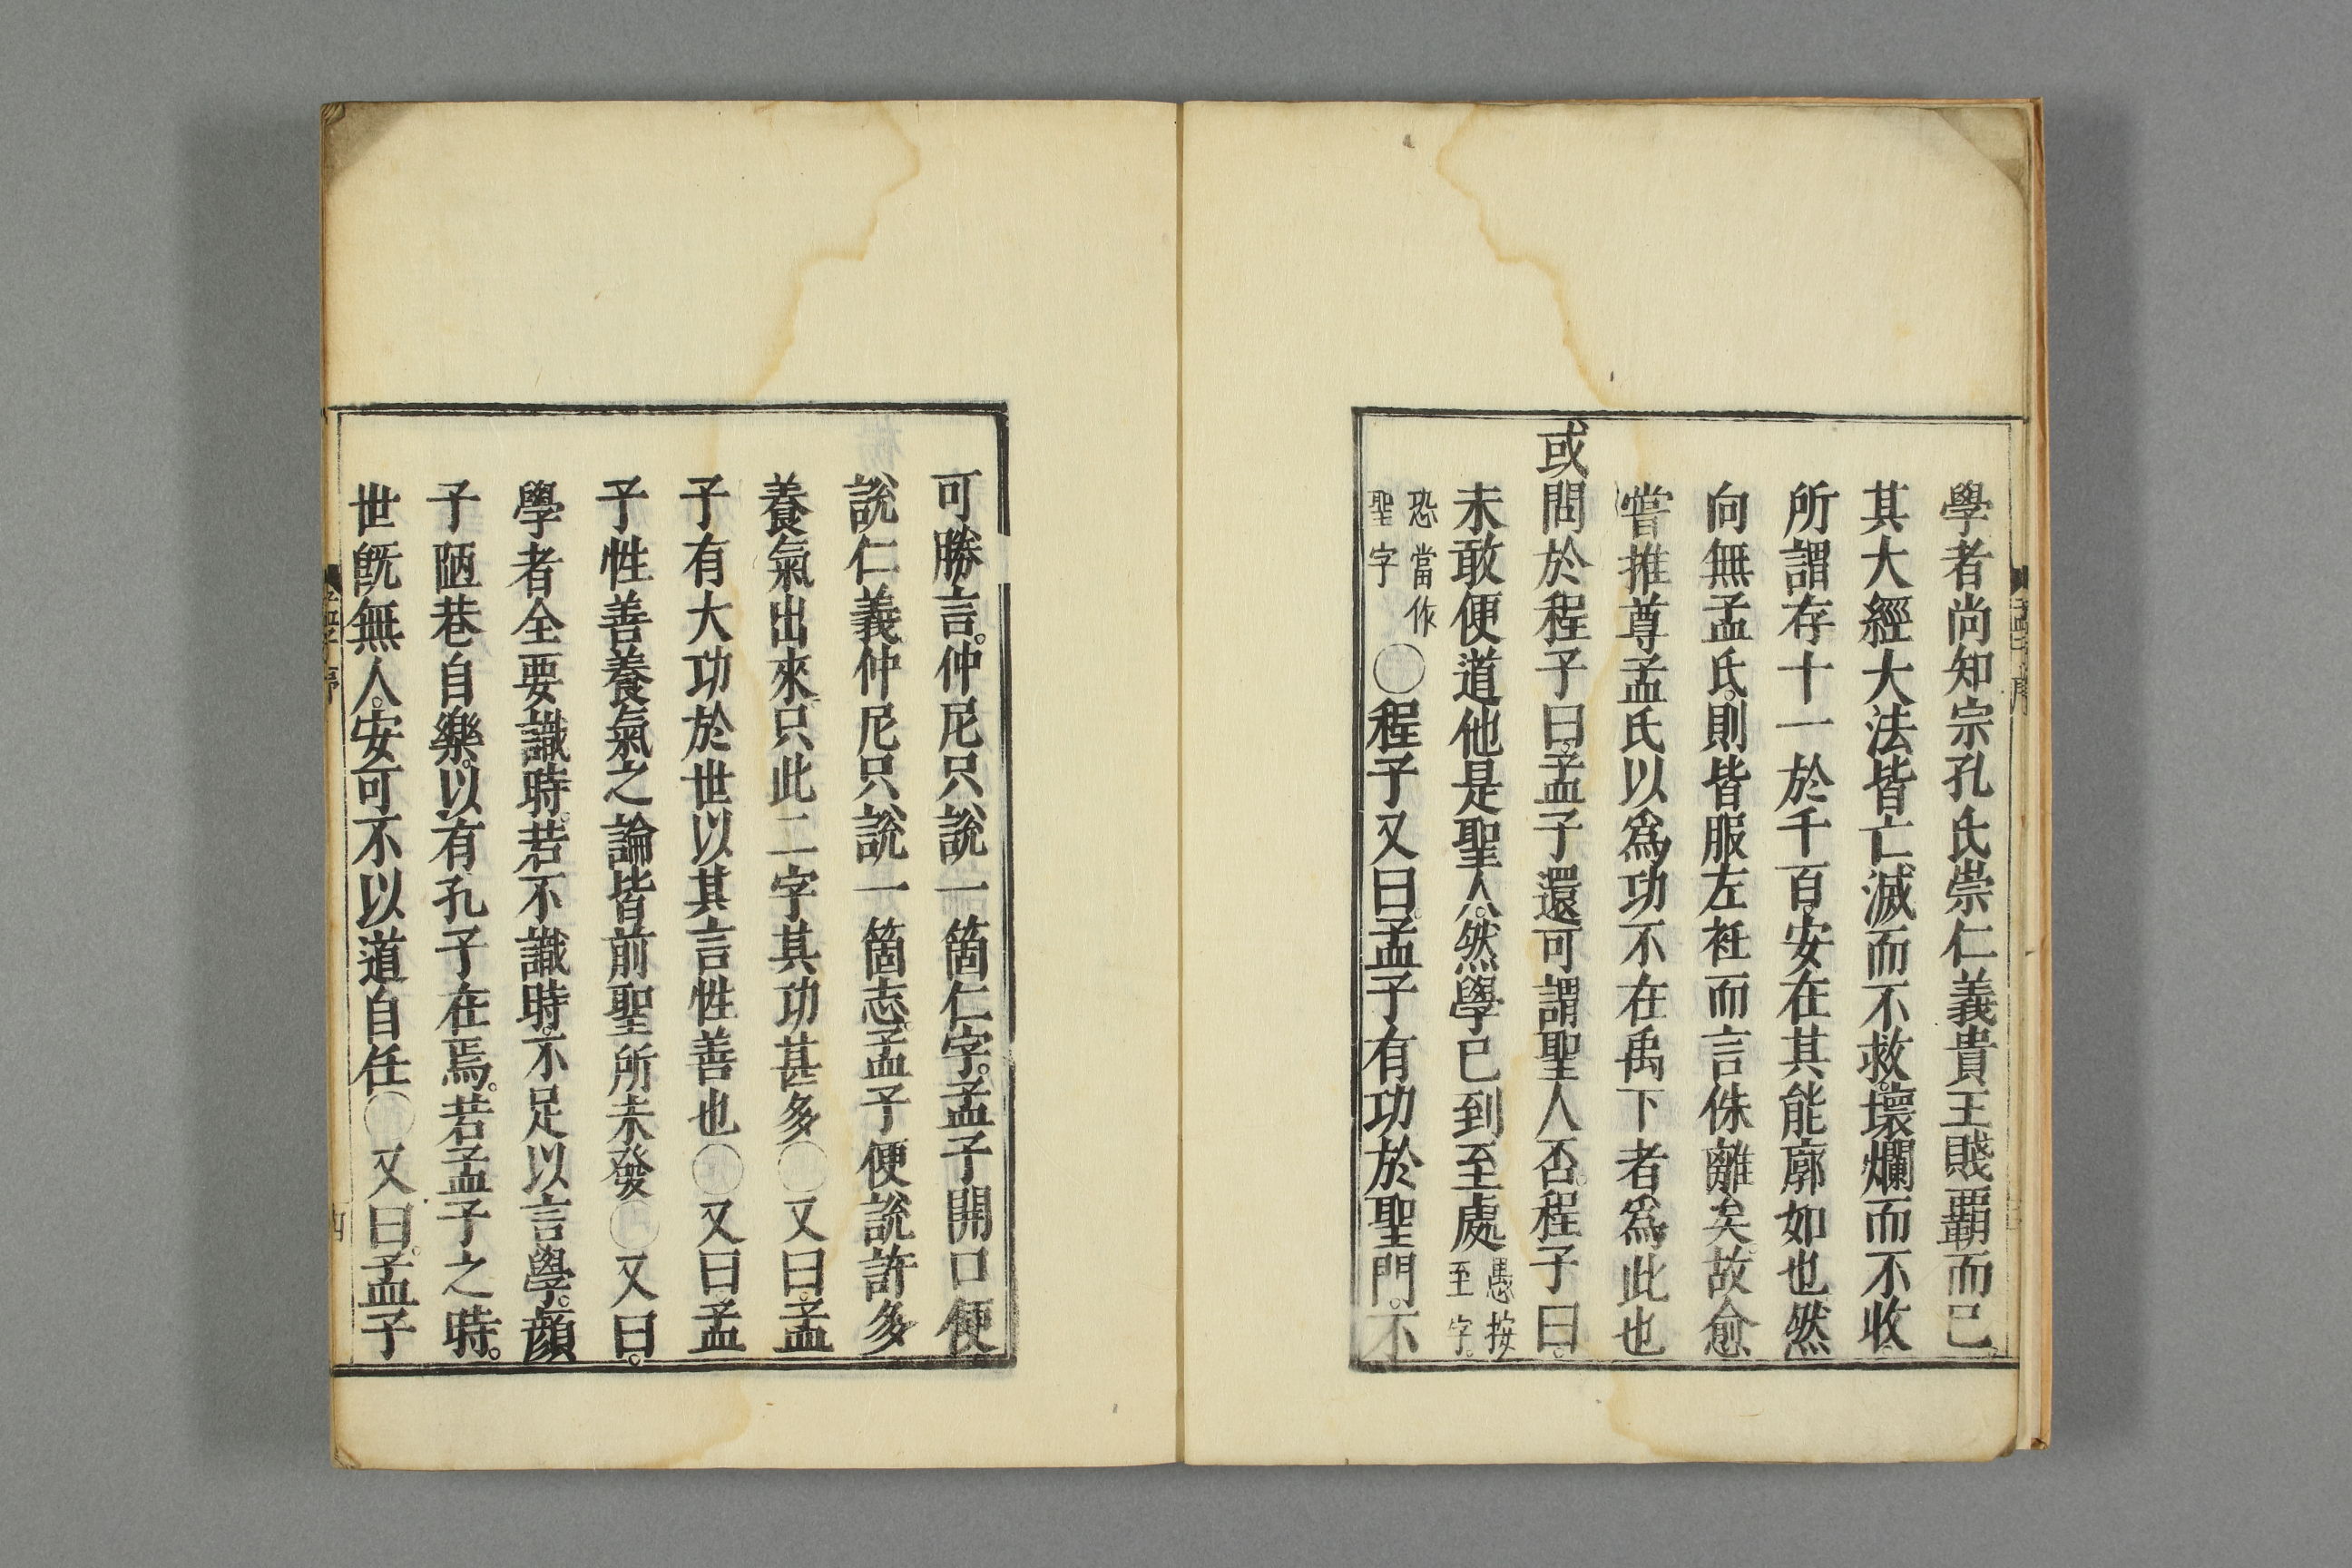 學者尚知宗孔氏崇仁義貴王賤覇而已。
其大經大法皆亡滅而不救。壞爛而不收。
所謂存十一於千百。安在其能廓如也然
向無孟氏。則皆服左衽而言侏離矣故愈
嘗推尊孟氏以爲功不在禹下者爲此也
或問於程子曰。孟子還可謂聖人否。程子曰。
未敢便道他是聖人。然學已到至處愚按至字。
恐當作聖字○程子又曰。孟子有功於聖門。不
可勝言。仲尼只說一箇仁字。孟子開口便
說仁義仲尼只說一箇志。孟子便說許多
養氣出來只此二字其功甚多○又曰。孟
子有大功於世以其言性善也○又曰。孟
子性善養氣之論皆前聖所未發○又曰。
學者全要識時。若不識時。不足以言學。顏
子陋巷自樂。以有孔子在焉。若孟子之時。
世旣無人。安可不以道自任○又曰。孟子